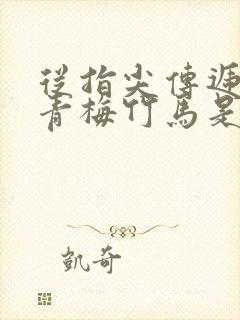 從指尖傳遞
青梅竹馬是
凱奇